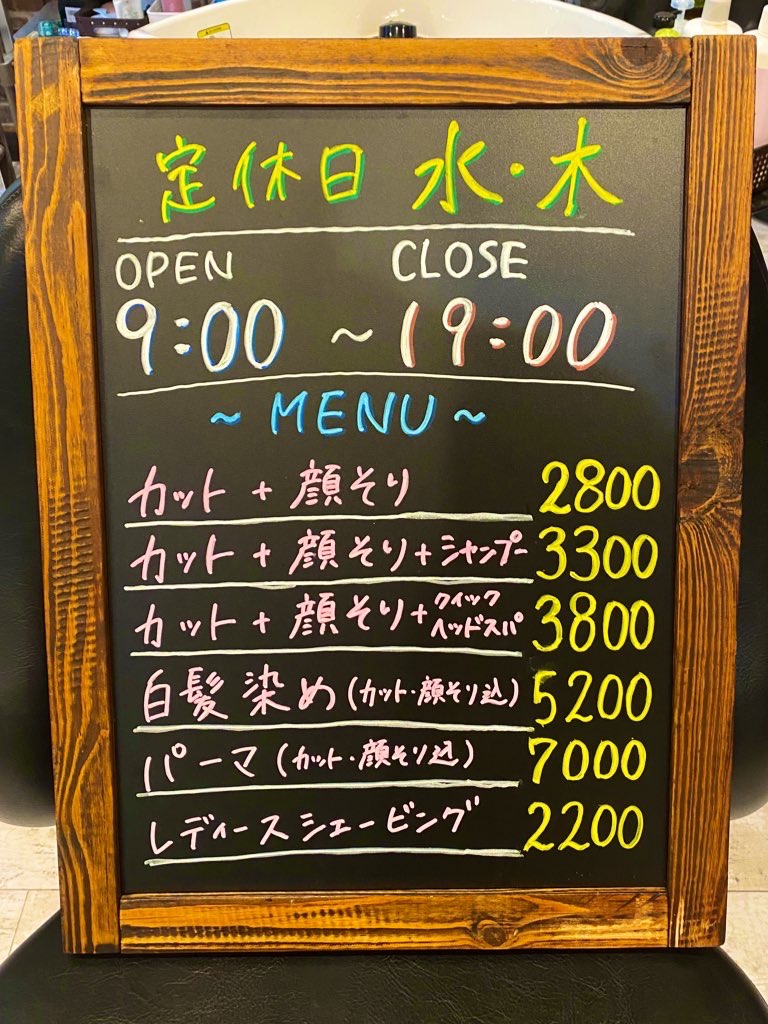 定休日 水・木
OPEN CLOSE
9:00 ~ 19:00
~ MENU ~
カット + 顔そり 2800
カット + 顔そり + シャンプー 3300
カット + 顔そり + クイックヘッドスパ 3800
白髪染め (カット・顔そり込) 5200
パーマ (カット・顔そり込) 7000
レディースシェービング 2200